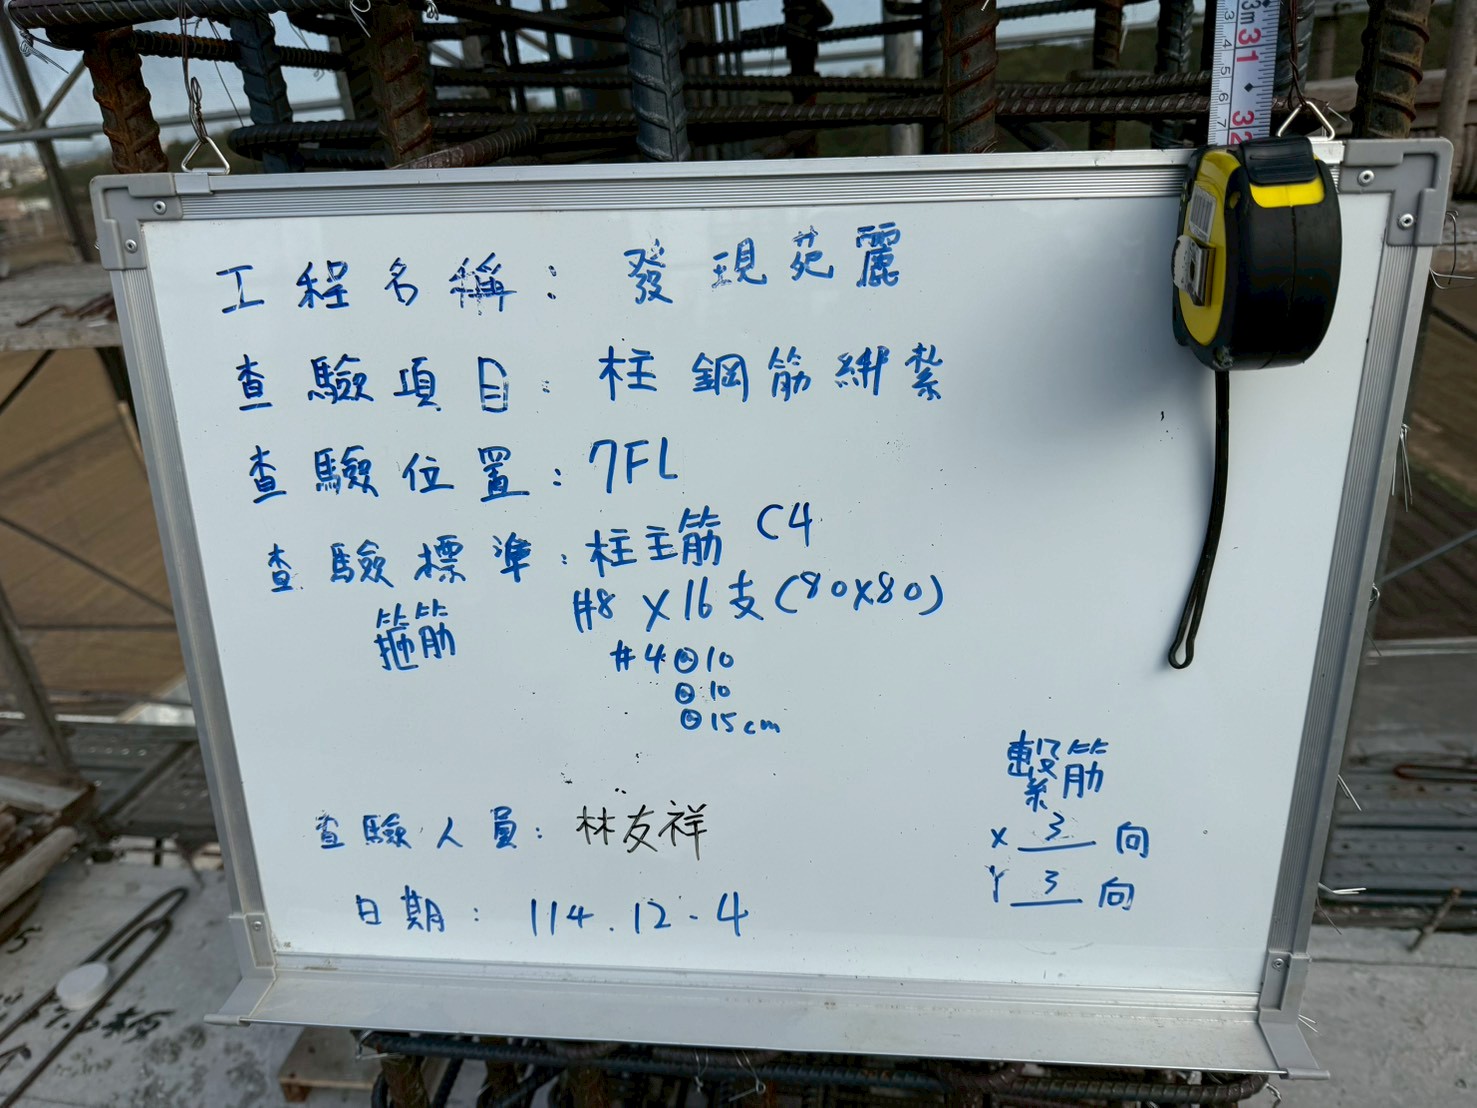 3m 31
32
3
4
5
6
7
工程名稱：發現苑麗
查驗項目：柱鋼筋綁紮
查驗位置：7FL
查驗標準：柱主筋 C4
#8 X 16支(80X80)
箍筋
#4@10
@10
@15cm
繫筋
X 3 向
Y 3 向
查驗人員：林友祥
日期：114.12-4